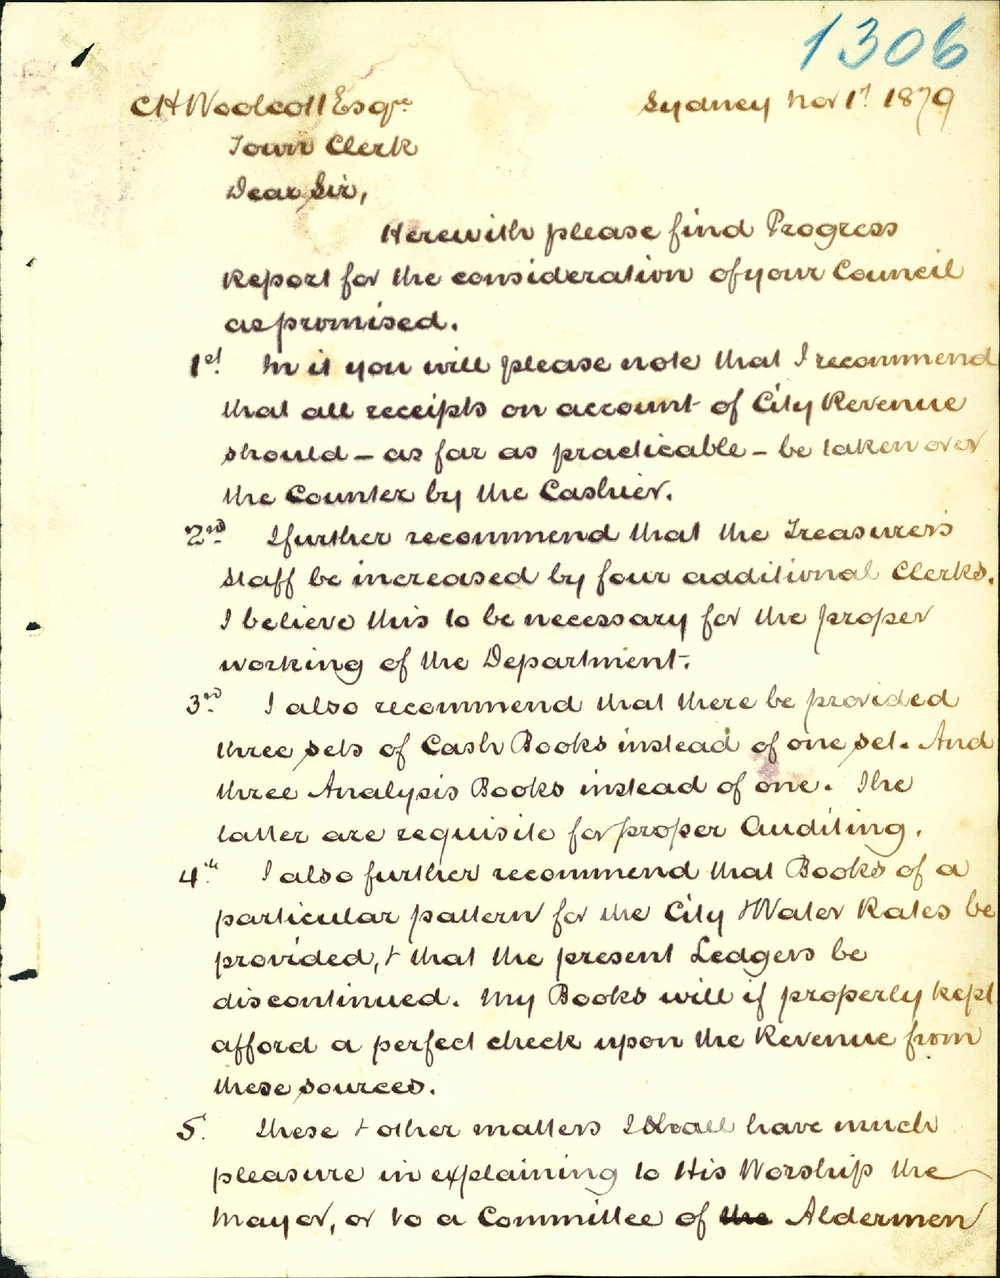 1306
CH Woolcott Esqre
Sydney Nov 1st 1879
Town Clerk
Dear Sir,
Herewith please find Progress
Report for the consideration of your Council
as promised.
1st. In it you will please note that I recommend
that all receipts on account of City Revenue
should – as far as practicable – be taken over
the Counter by the Cashier.
2nd. I further recommend that the Treasurer's
Staff be increased by four additional Clerks.
I believe this to be necessary for the proper
working of the Department.
3rd. I also recommend that there be provided
three sets of Cash Books instead of one set. And
three Analysis Books instead of one. The
latter are requisite for proper Auditing.
4th. I also further recommend that Books of a
particular pattern for the City & Water Rates be
provided, & that the present Ledgers be
discontinued. My Books will if properly kept
afford a perfect check upon the Revenue from
these sources.
5. These & other matters I shall have much
pleasure in explaining to His Worship the
Mayor, or to a Committee of the Aldermen